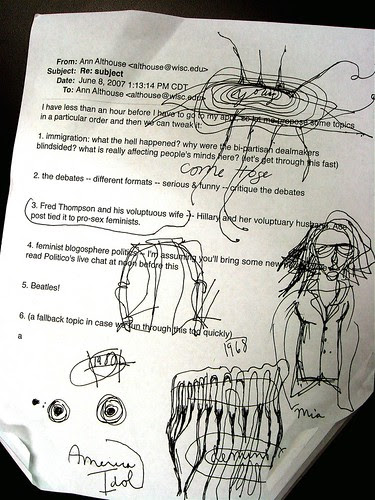 From: Ann Althouse <althouse@wisc.edu>
Subject: Re: subject
Date: June 8, 2007 1:13:14 PM CDT
To: Ann Althouse <althouse@wisc.edu>
I have less than an hour before I have to go to my appt, so let me propose some topics
in a particular order and then we can tweak it:
1. immigration: what the hell happened? why were the bi-partisan dealmakers
blindsided? what is really affecting people's minds here? (let's get through this fast)
come
2. the debates -- different formats -- serious & funny -- critique the debates
3. Fred Thompson and his voluptuous wife -- Hillary and her voluptuary husband. Ann
post tied it to pro-sex feminists.
4. feminist blogosphere politics -- I'm assuming you'll bring some new
read Politico's live chat at noon before this
5. Beatles!
6. (a fallback topic in case we run through this too quickly)
a
1968
Mia
America
Idol